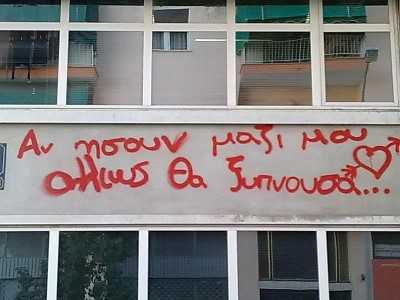 Αν ησουν μαζι μου
αλλιως θα ξυπνουσα...